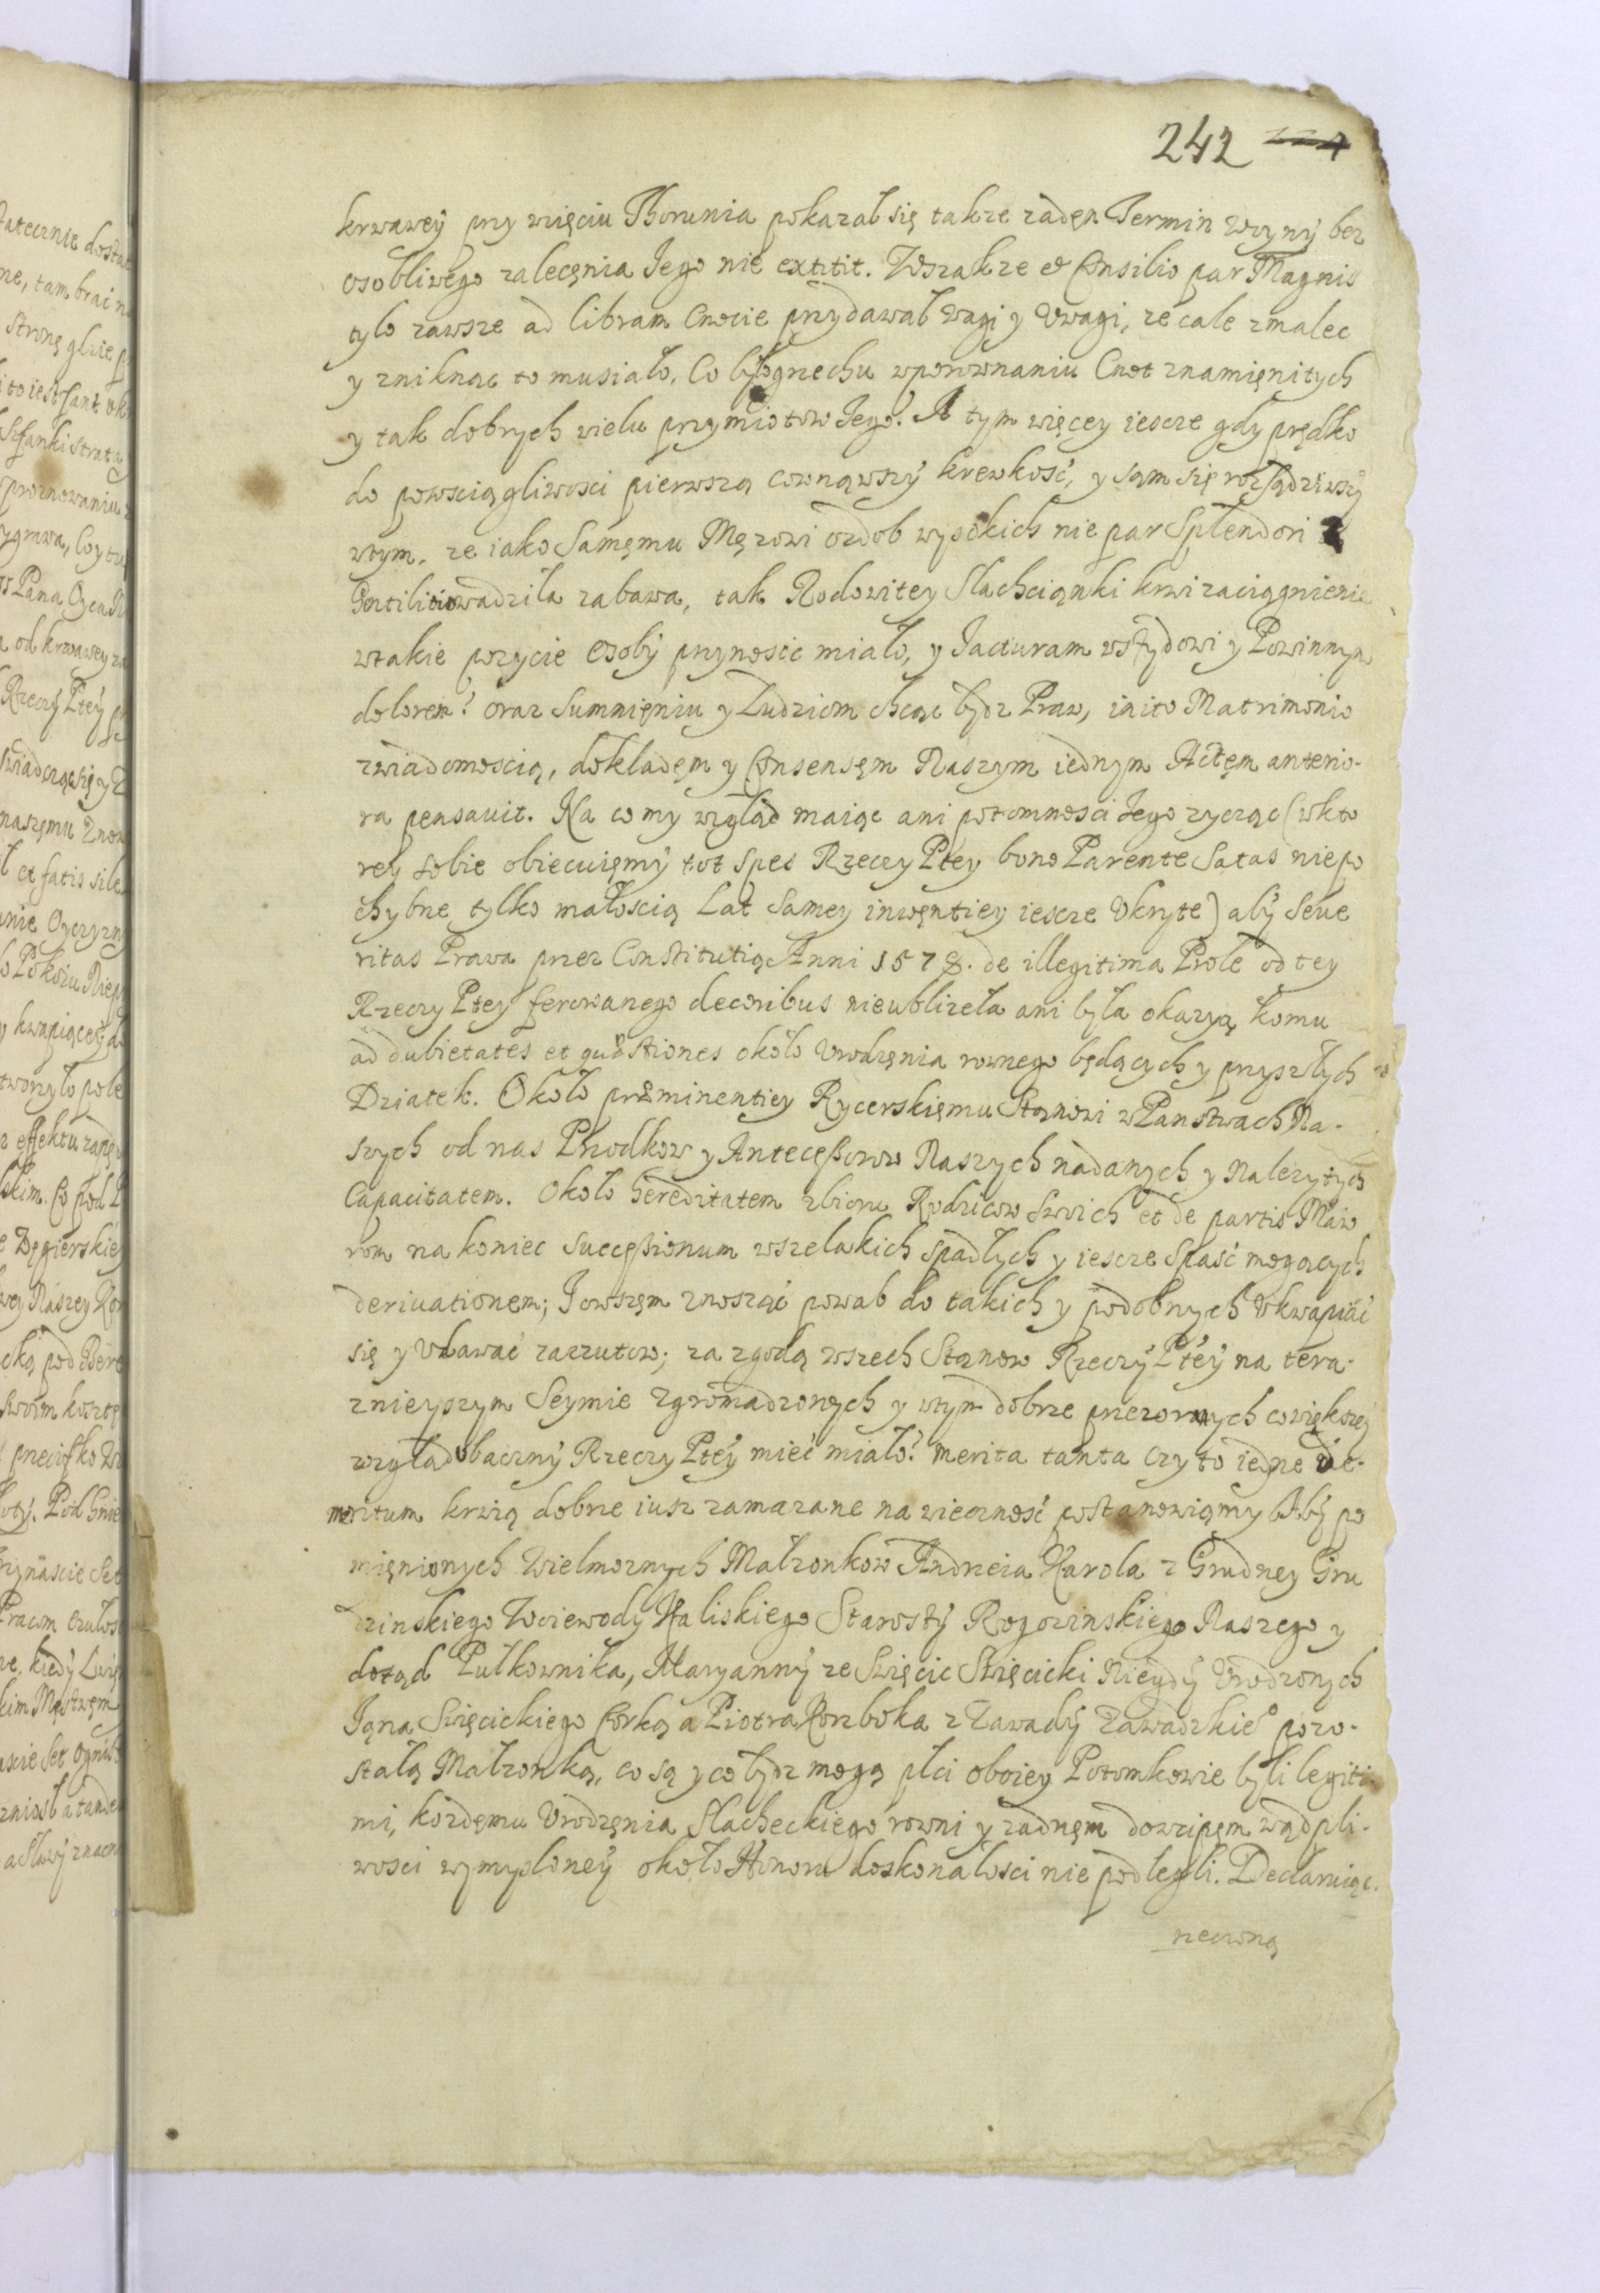 242
krwawey przy wzięciu Thorunia pokazał się także żadęn Termin woyny bez
osobliwego zalecęnia Jego nie extitit. Wszakże et Consilio par Magnis
tylo zawsze ad libram Cnocie przydawał wagi y Uwagi, że cale zmalec
y zniknąc to musiało. Co było grzechu wporownaniu Cnot znamięnitych
y tak dobrych wielu przymiotow Jego. A tym więcey iescze gdy prędko
do powsciągliwosci pierwszą cownąwszy krewkość, y sąm się rozsądziwszy
wtym, że iako Samęmu Mężowi ozdob wysokich nie par Splendori
Gentilitio wadziła zabawa, tak Rodowitey Slachcianki krwi zaciągnienie
wtakie pożycie Osoby przynosic miało, y Jacturam wstydowi y Powinnym
dolorem: oraz Sumnięniu y Ludziom chcąc bydz Praw, inito Matrimonio
zwiadomoscią, dokladęm y Consensęm Naszym iednym Actęm anterio-
ra pensavit. Na co my wzgląd maiąc ani potomnosci Jego zycząc (wkto
rey sobie obiecuięmy tot spes Rzeczy Ptey bono Parente Satas niepo
chybne tylko małoscią Lat Samey inwęntiey iescze Ukryte) aby Seve
ritas Prawa przez Constitutią Anni 1578. de illegitima Prole od tey
Rzeczy Ptey ferowanego decoribus nieubliżeła ani była okazyą komu
ad dubietates et quæstiones około Urodzęnia rownego będących y przyszłych
Dziatek. Około præminentiey Rycerskięmu Stąnowi w Panstwach Na-
szych od nas Przodkow y Antecessorow Naszych nadanych y Nalezytych
Capacitatem. Około hereditatem zbioru Rodzicow Swoich et de partis Maio
rom na koniec successionum wszelakich spadłych y iescze spaść mogących
derivationem; Jowszęm znosząc powab do takich y podobnych Ukwapiać
się y Udawać zarzutow; za zgodą wszech Stąnow Rzeczy Ptey na tera-
znieyszym Seymie zgromadzonych y wtym dobrze przezornych co większy
wzgląd obaczny Rzeczy Ptey mieć miało? merita tanta czy to iedne de-
meritum krwią dobrze iusz zamazane na wieczność postanowięmy Aby po
mięnionych Wielmoznych Małzonkow Andrzeia Karola z Grudney Gru
dzinskiego Woiewody Kaliskiego Starosty Rogozinskiego Naszego y
dotąd Pułkownika, Maryanny ze Swięcic Swięcicki Niegdy Urodzonych
Jąna Swięcickiego Corką a Piotra Korzboka z Zawady Zawadzkieº pozo-
stałą Małzonką, co są y co bydz mogą płci oboiey Potomkowie byli legiti
mi, kozdęmu Urodzęnia Slacheckiego rowni y żadnęm dowcipęm wądpli-
wosci wymysloney około Honoru doskonalosci nie podlegli. Declaruiąc
rzeczoną